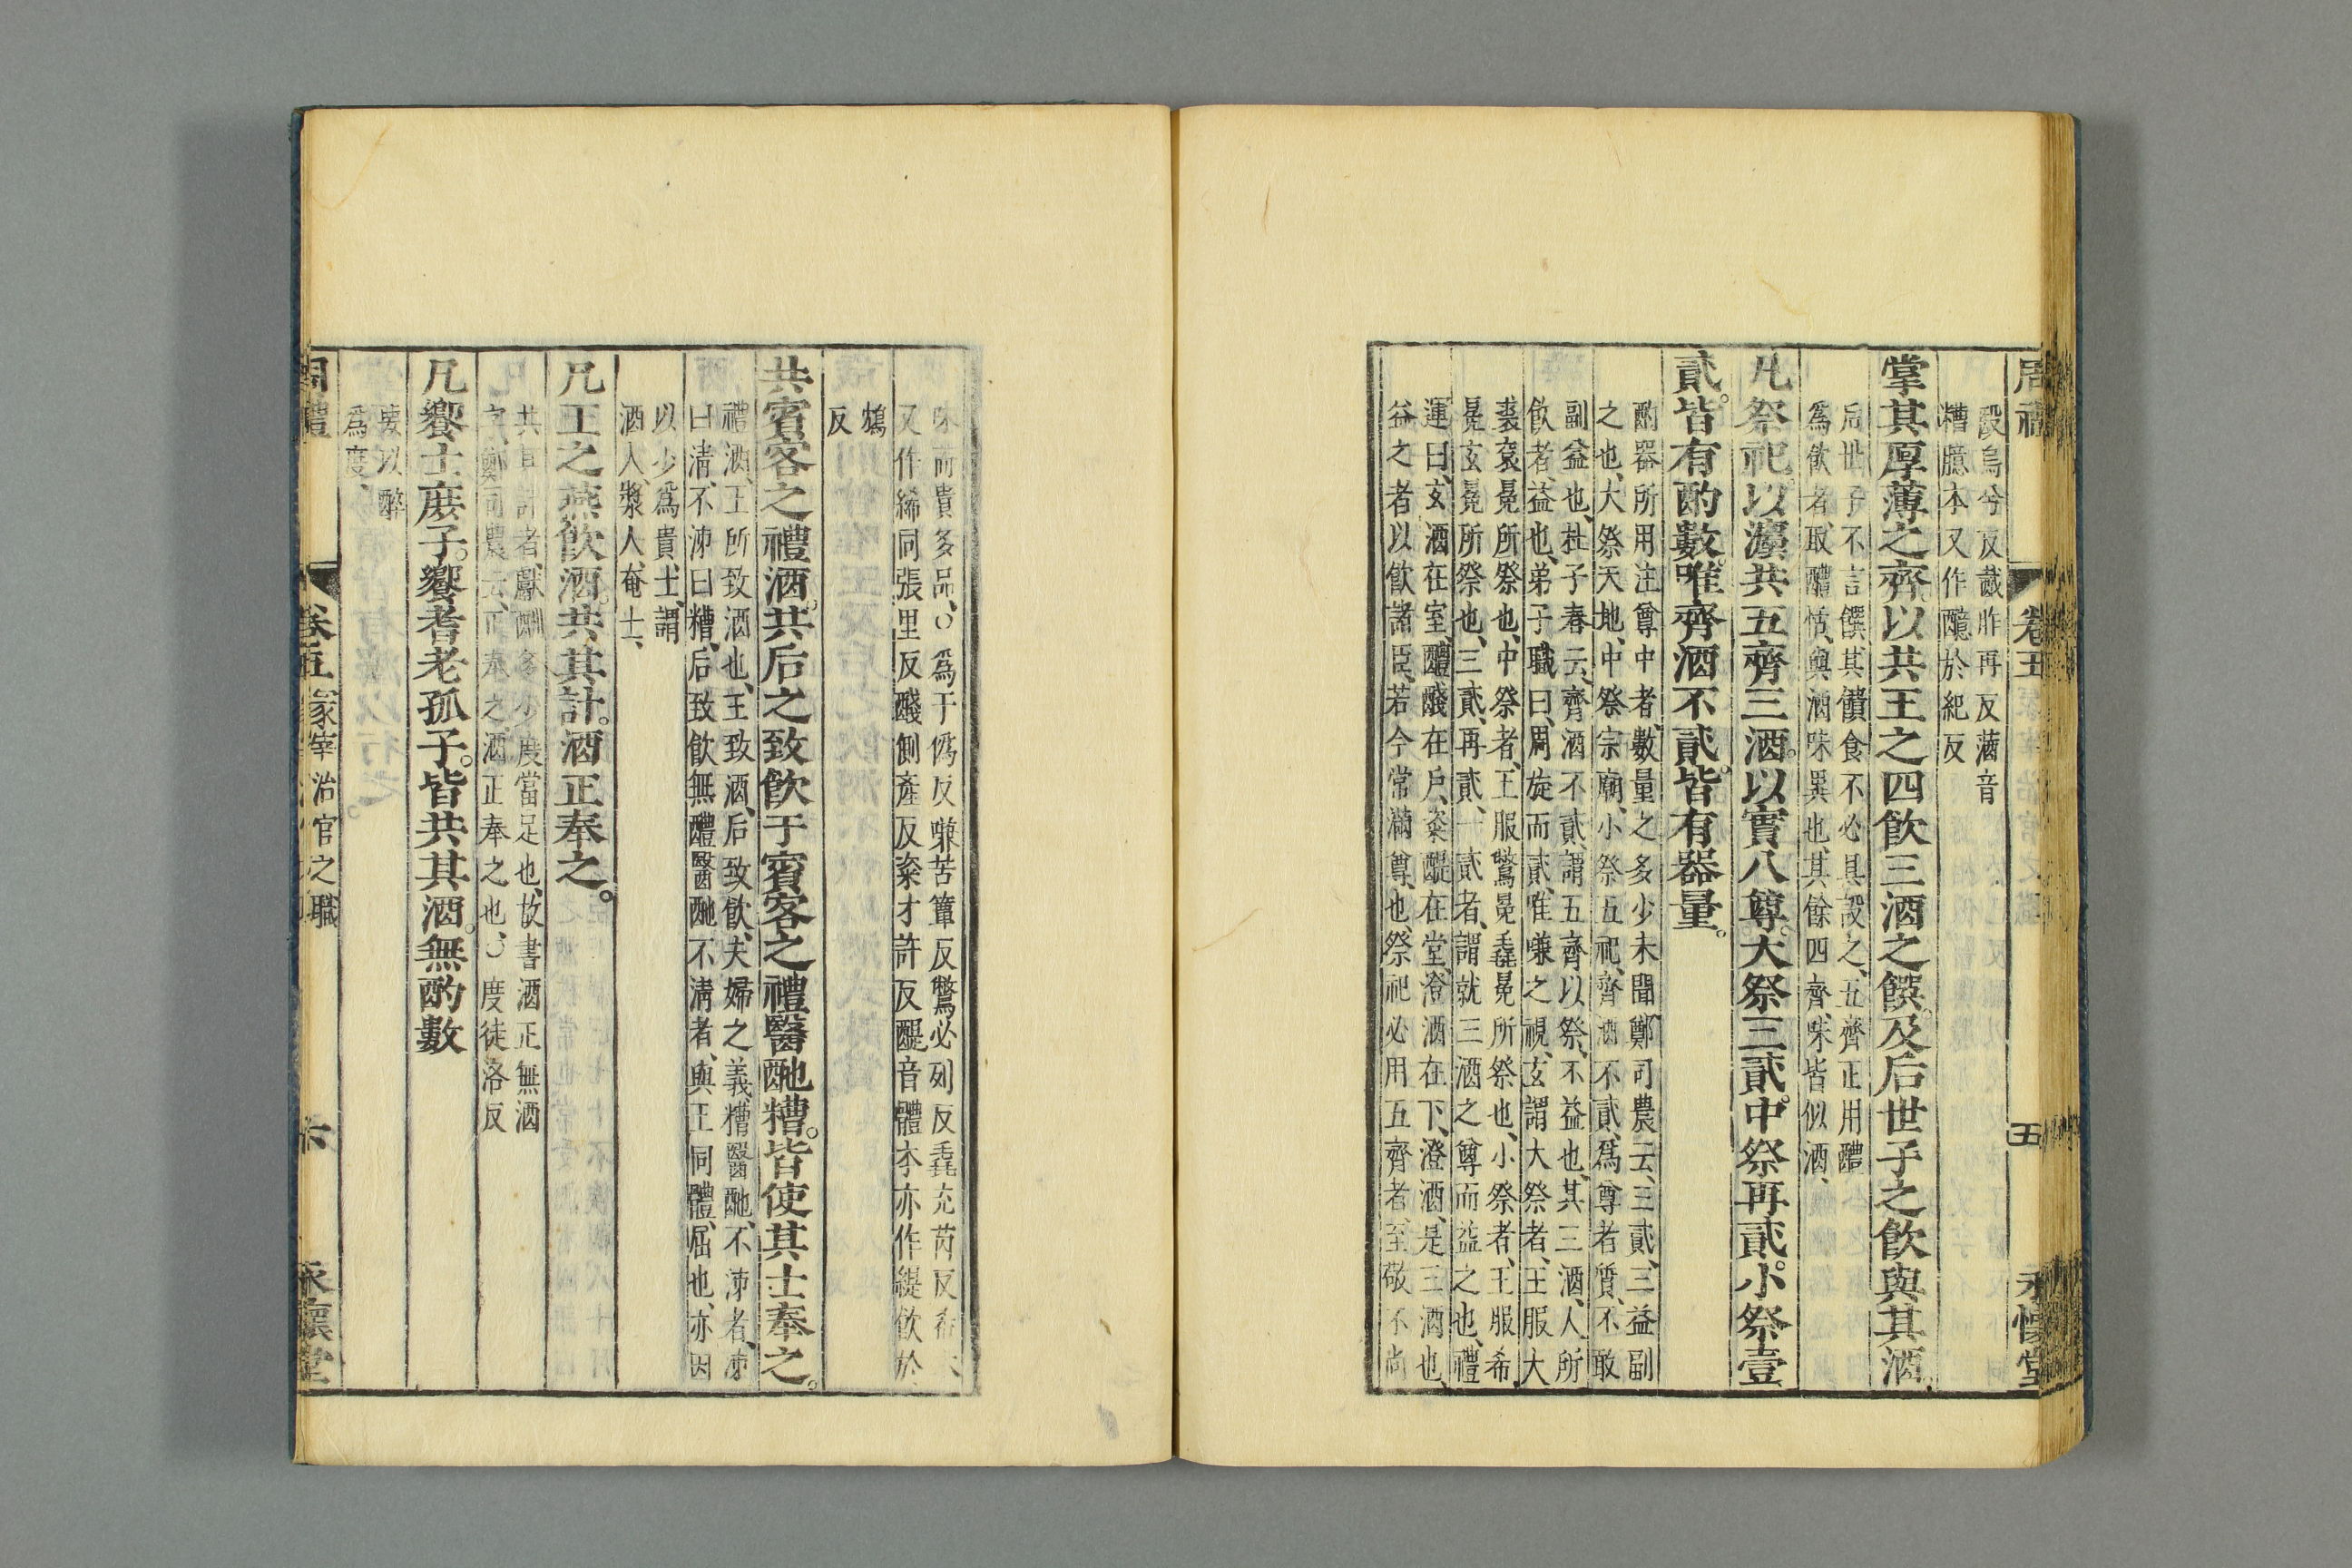 周禮 卷五 五 永懷堂
毀烏兮反 酨昨再反 䤃音
糟臆本又作醷於紀反
掌其厚薄之齊以共王之四飲三酒之饌及后世子之飲與其酒
后世子不言饌其饋食不必具設之五齊正用醴
爲飲者取醴恬與酒味異也其餘四齊味皆似酒
凡祭祀以灋共五齊三酒以實八尊大祭三貳中祭再貳小祭壹
貳皆有酌數唯齊酒不貳皆有器量
酌器所用注尊中者數量之多少未聞鄭司農云三貳三益副
之也大祭天地中祭宗廟小祭五祀齊酒不貳爲尊者質不敢
副益也杜子春云齊酒不貳謂五齊以祭不益也其三酒人所
飲者益也弟子職曰周旋而貳唯嗛之視玄謂大祭者王服大
裘袞冕所祭也中祭者王服鷩冕毳冕所祭也小祭者王服希
冕玄冕所祭也三貳再貳一貳者謂就三酒之尊而益之也禮
運曰玄酒在室醴醆在戶粢醍在堂澄酒在下澄酒是三酒也
益之者以飲諸臣若今常滿尊也祭祀必用五齊者至敬不尚
味而貴多品○爲于僞反嗛苦簟反鷩必列反毳充芮反希本
又作絺同張里反醆側產反粢才許反醍音體本亦作緹飲於
鴆
反
共賓客之禮酒共后之致飲于賓客之禮醫酏糟皆使其士奉之
禮酒王所致酒也王致酒后致飲夫婦之義糟醫酏不泲者泲
曰清不泲曰糟后致飲無醴醫酏不清者與王同體屈也亦因
以少爲貴士謂
酒人漿人奄士
凡王之燕飲酒共其計酒正奉之
共其計者獻酬多少度當足也故書酒正無酒
字鄭司農云正奉之酒正奉之也○度徒洛反
凡饗士庶子饗耆老孤子皆共其酒無酌數
要以醉
爲度
周禮 卷五 冢宰治官之職 六 永懷堂